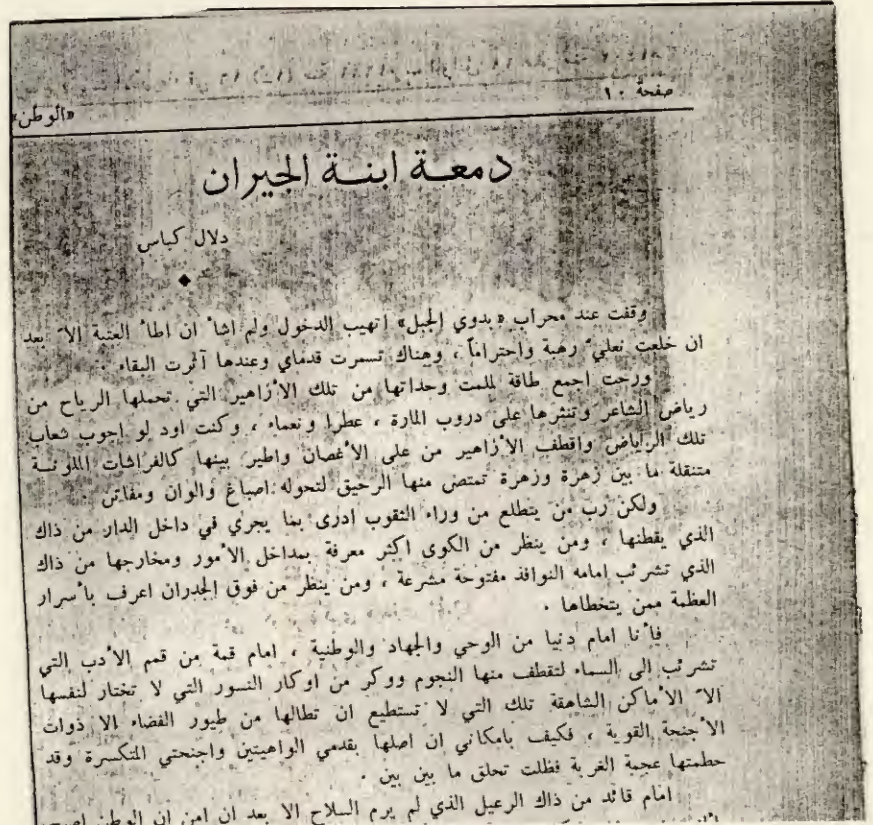 صفحة ١٠
«الوطن»
دمعة ابنة الجيران
دلال كباس
وقفت عند محراب «بدوي الجبل» اتهيب الدخول ولم اشأ ان اطأ العتبة الا بعد
ان خلعت نعليّ رهبة واحتراماً ، وهناك تسمرت قدماي وعندها آثرت البقاء .
ورحت اجمع طاقة لملمت وحداتها من تلك الأزاهير التي تحملها الرياح من
رياض الشاعر وتنثرها على دروب المارة ، عطرا ونعماء ، وكنت اود لو اجوب شعاب
تلك الرياض واقطف الأزاهير من على الأغصان واطير بينها كالفراشات الملونة
متنقلة ما بين زهرة وزهرة تمتص منها الرحيق لتحوله اصباغ والوان ومفاتن .
ولكن رب من يتطلع من وراء الثقوب ادرى بما يجري في داخل الدار من ذاك
الذي يقطنها ، ومن ينظر من الكوى اكثر معرفة بمداخل الأمور ومخارجها من ذاك
الذي تشرئب امامه النوافذ مفتوحة مشرعة ، ومن ينظر من فوق الجدران اعرف بأسرار
العظمة ممن يتخطاها .
فأنا امام دنيا من الوحي والجهاد والوطنية ، امام قمة من قمم الأدب التي
تشرئب الى السماء لتقطف منها النجوم ووكر من اوكار النسور التي لا تختار لنفسها
الا الأماكن الشاهقة تلك التي لا تستطيع ان تطالها من طيور الفضاء الا ذوات
الأجنحة القوية ، فكيف بامكاني ان اصلها بقدمي الواهيتين واجنحتي المتكسرة وقد
حطمتها عجمة الغربة فظلت تحلق ما بين بين .
امام قائد من ذاك الرعيل الذي لم يرم السلاح الا بعد ان امن ان الوطن اصبح